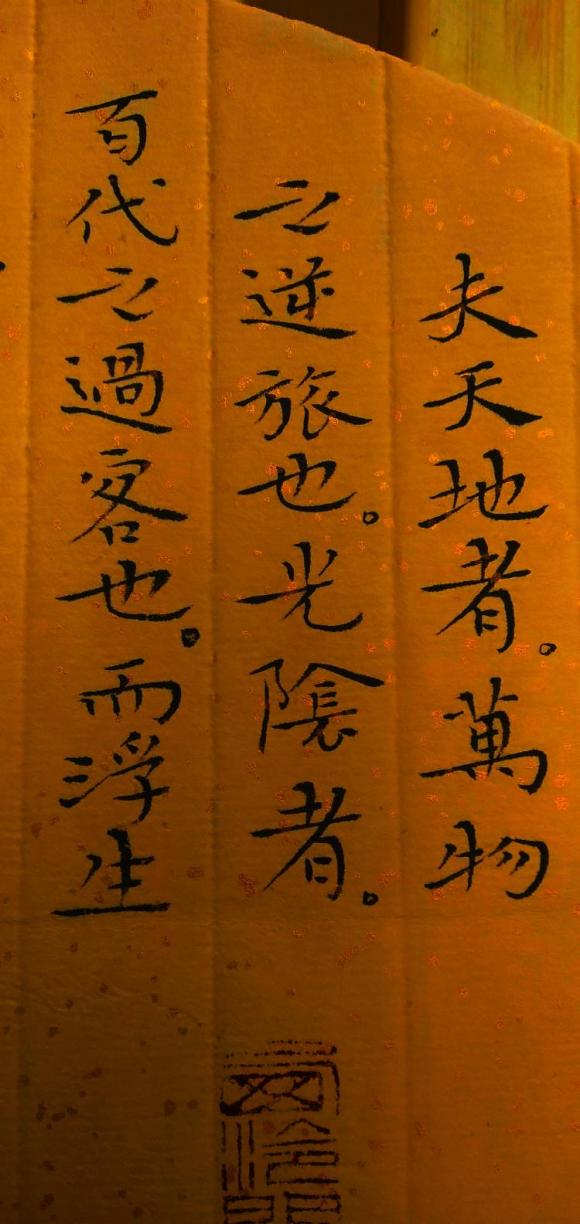 夫天地者。萬物
之逆旅也。光陰者。
百代之過客也。而浮生